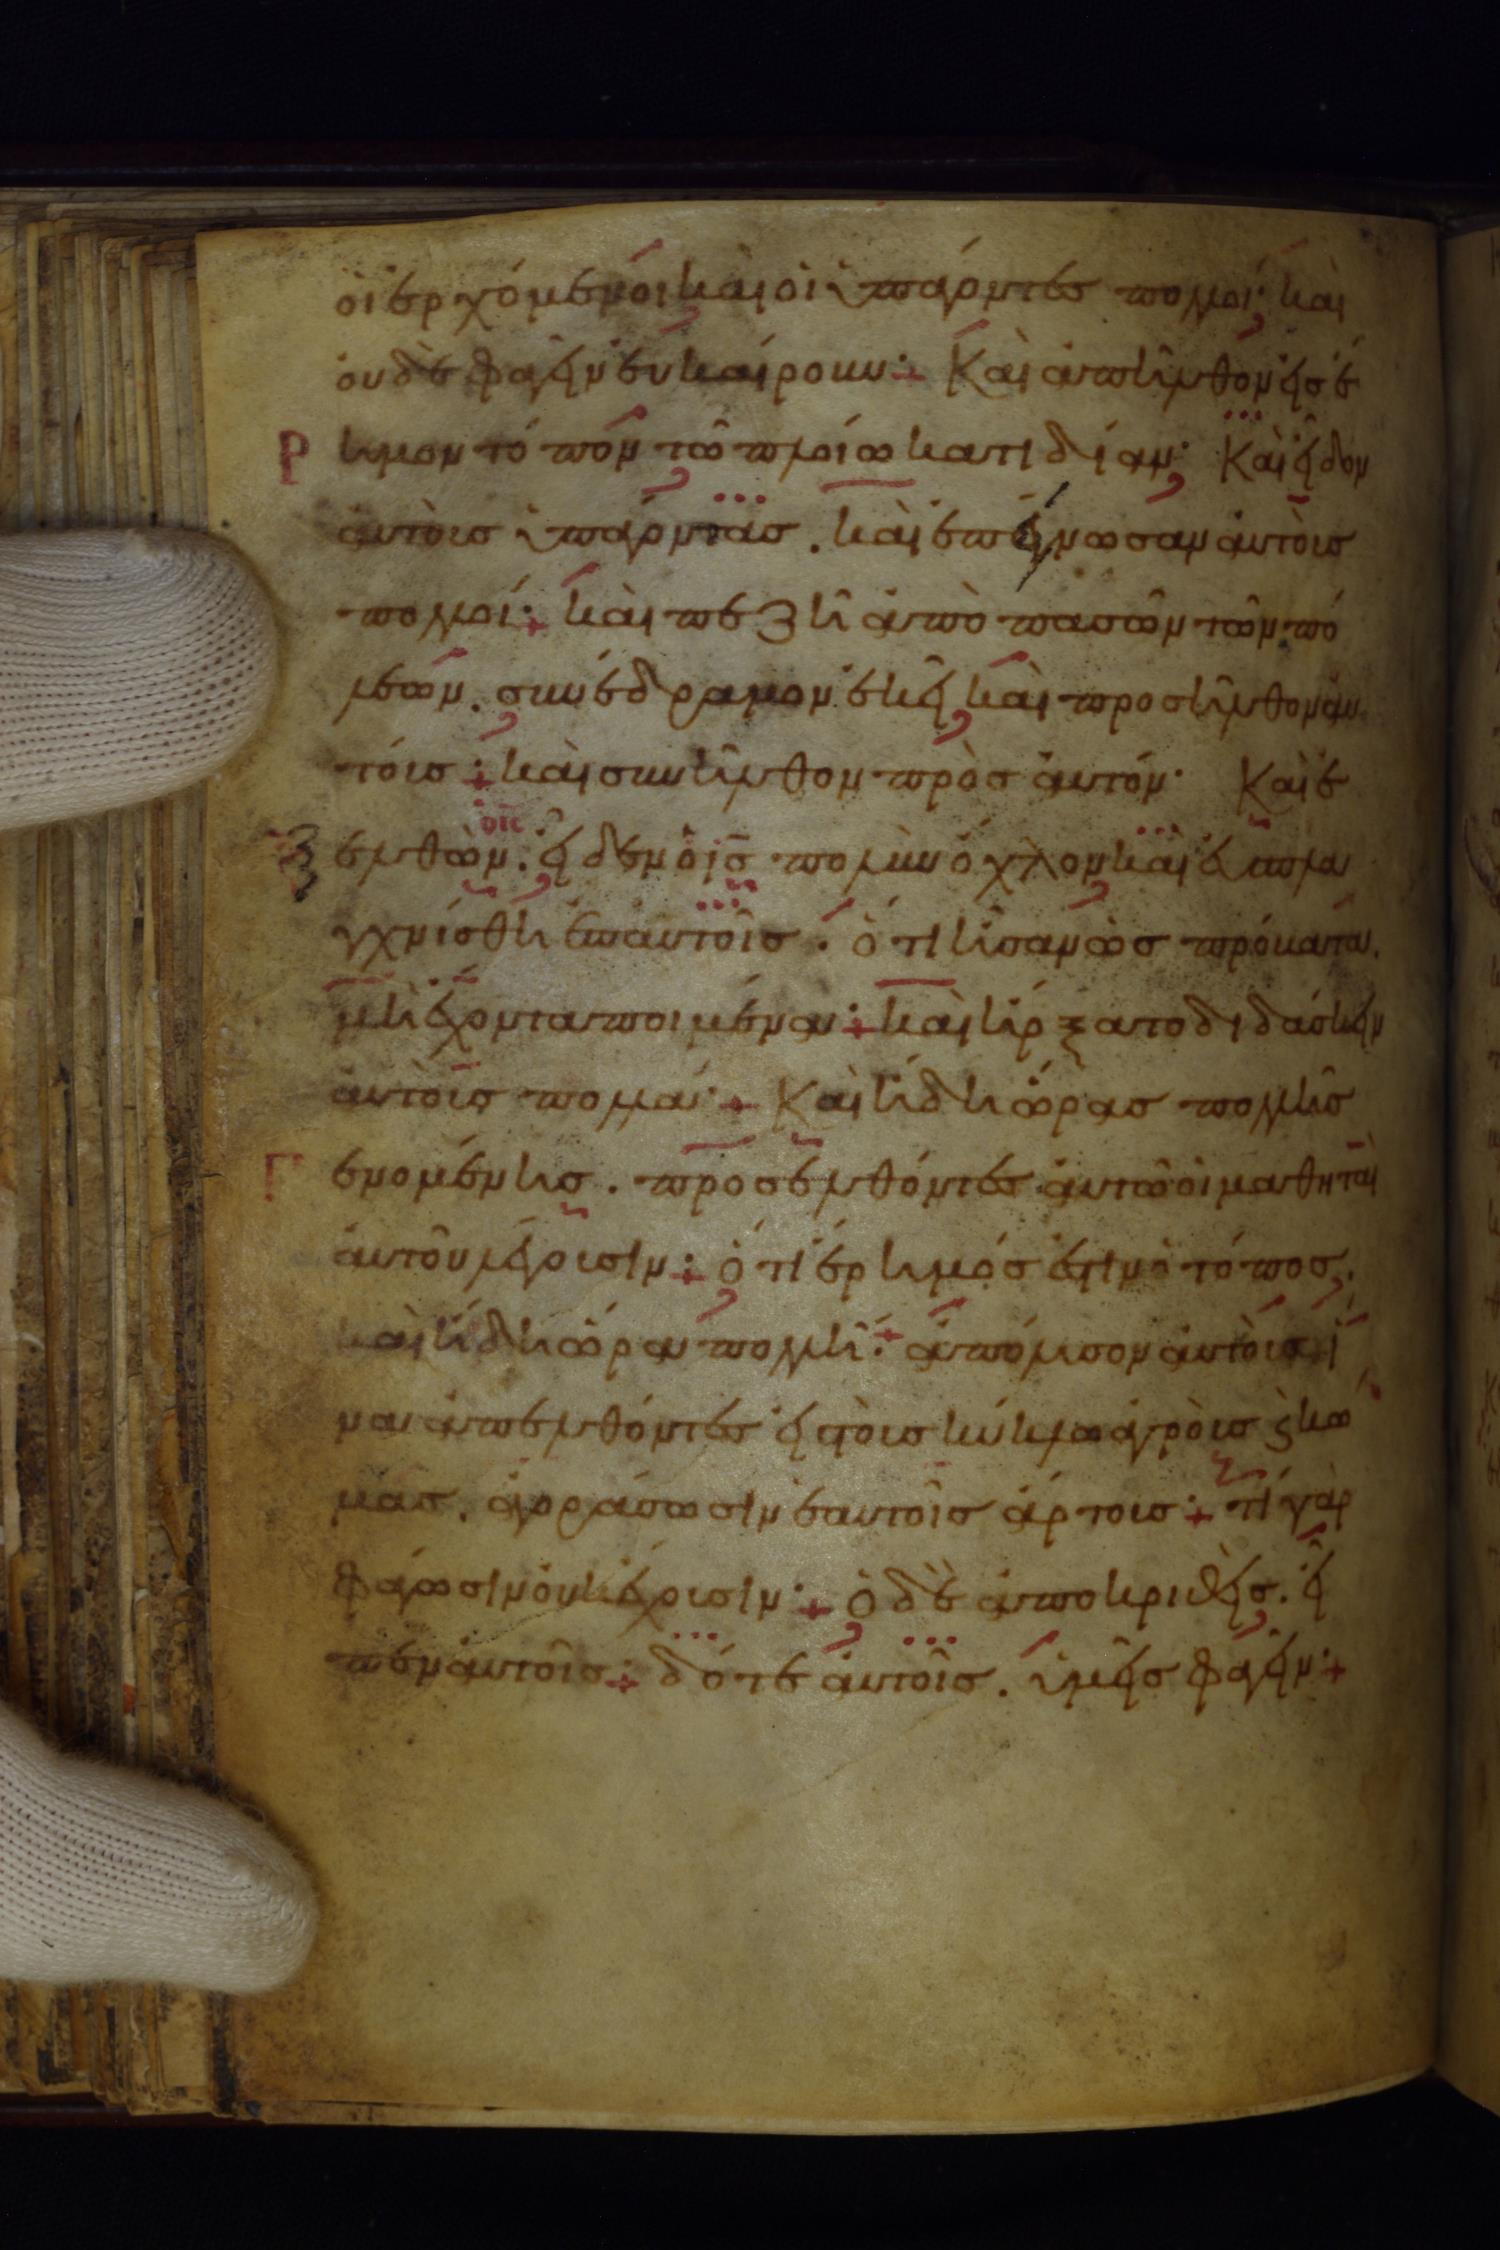 οἱ ἐρχόμενοι καὶ οἱ ὑπάγοντες πολλοί· καὶ
οὐδὲ φαγεῖν ευκαίρουν· Καὶ ἀπῆλθον εἰς ἔ
Ρ ημον τόπον τῶ πλοίω κατιδίαν· Καὶ εἶδον
αὐτοὺς ὑπάγοντας . καὶ ἐπέγνωσαν αὐτοὺς
πολλοί· καὶ πεζῆ ἀπὸ πασῶν τῶν πό
λεων . συνέδραμον ἐκεῖ καὶ προσῆλθον αὐ
τοῖς· καὶ συνῆλθον πρὸς αὐτόν· Καὶ ἐ
Ξ ελθὼν . εἶδεν ὁ ις πολὺν ὄχλον καὶ ἐσπλα
γχνίσθη ἐπαυτοῖς . ὅτι ἦσαν ὡς πρόβατα .
μὴ ἔχοντα ποιμένα· καὶ ἤρξατο διδάσκειν
αὐτοὺς πολλά· Καὶ ἤδη ὥρας πολλῆς
Γ ενομένης . προσελθόντες αὐτῶ οἱ μαθηταὶ
αὐτοῦ λέγουσιν· ὅτι ἔρημός ἐστιν ὁ τόπος .
καὶ ἤδη ὥρα πολλή· ἀπόλυσον αὐτοὺς ἵ
να ἀπελθόντες εἰς τοὺς κύκλω ἀγροὺς ϛ κώ
μας . ἀγοράσωσιν ἑαυτοῖς ἄρτους· τί γὰρ
φάγωσιν οὐκ ἔχουσιν· ὁ δὲ ἀποκριθεὶς . εἶ
πεν αὐτοῖς· δότε αὐτοῖς . ὑμεῖς φαγεῖν·